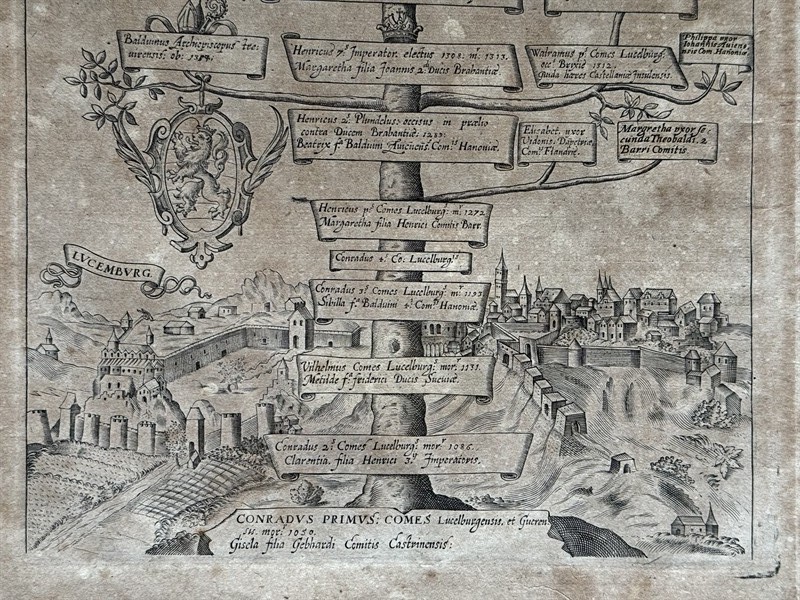 Balduinus Archiepiscopus tre=
virensis: ob: 1354.
Henricus 7.s Imperator. electus 1308. m: 1313.
Margaretha filia Joannis 2.di Ducis Brabantiæ.
Walramus p.s Comes Lucelburg:
occ.s Brixiæ 1312.
Guida hæres Castellaniæ Insulensis.
Philippa uxor
Iohannis Auien,
nsis Com. Hanoniæ
Henricus 2.s Plundelus: occisus in prælio
contra Ducem Brabantiæ. 1283:
Beatrix f.a Balduini Auiciens: Com.tis Hanoniæ.
Elisabet. uxor
Vidonis. Dãpetriæ,
Com.s Flandriæ.
Margretha uxor se:
cunda Theobaldi. 2
Barri Comitis.
Henricus p.s Comes Lucelburg: m.r 1272
Margaretha filia Henrici Comitis Barr.
Conradus 4.s Co: Lucelburg.s
LVCEMBVRG.
Conradus 3.s Comes Lucelburg.s m.r 1193
Sibilla f.a Balduini 4.ti Com.tis Hanoniæ.
Vilhelmus Comes Lucelburg.s mor.r 1131.
Metilde f.a friderici Ducis Sueviæ.
Conradus 2.s Comes Lucelburg.s mor.r 1086.
Clarentia. filia Henrici 3.ij Imperatoris.
CONRADVS PRIMVS: COMES Lucelburgensis. et Gueren
sis. mor.r 1050.
Gisela filia Gebhardi Comitis Castrinensis: